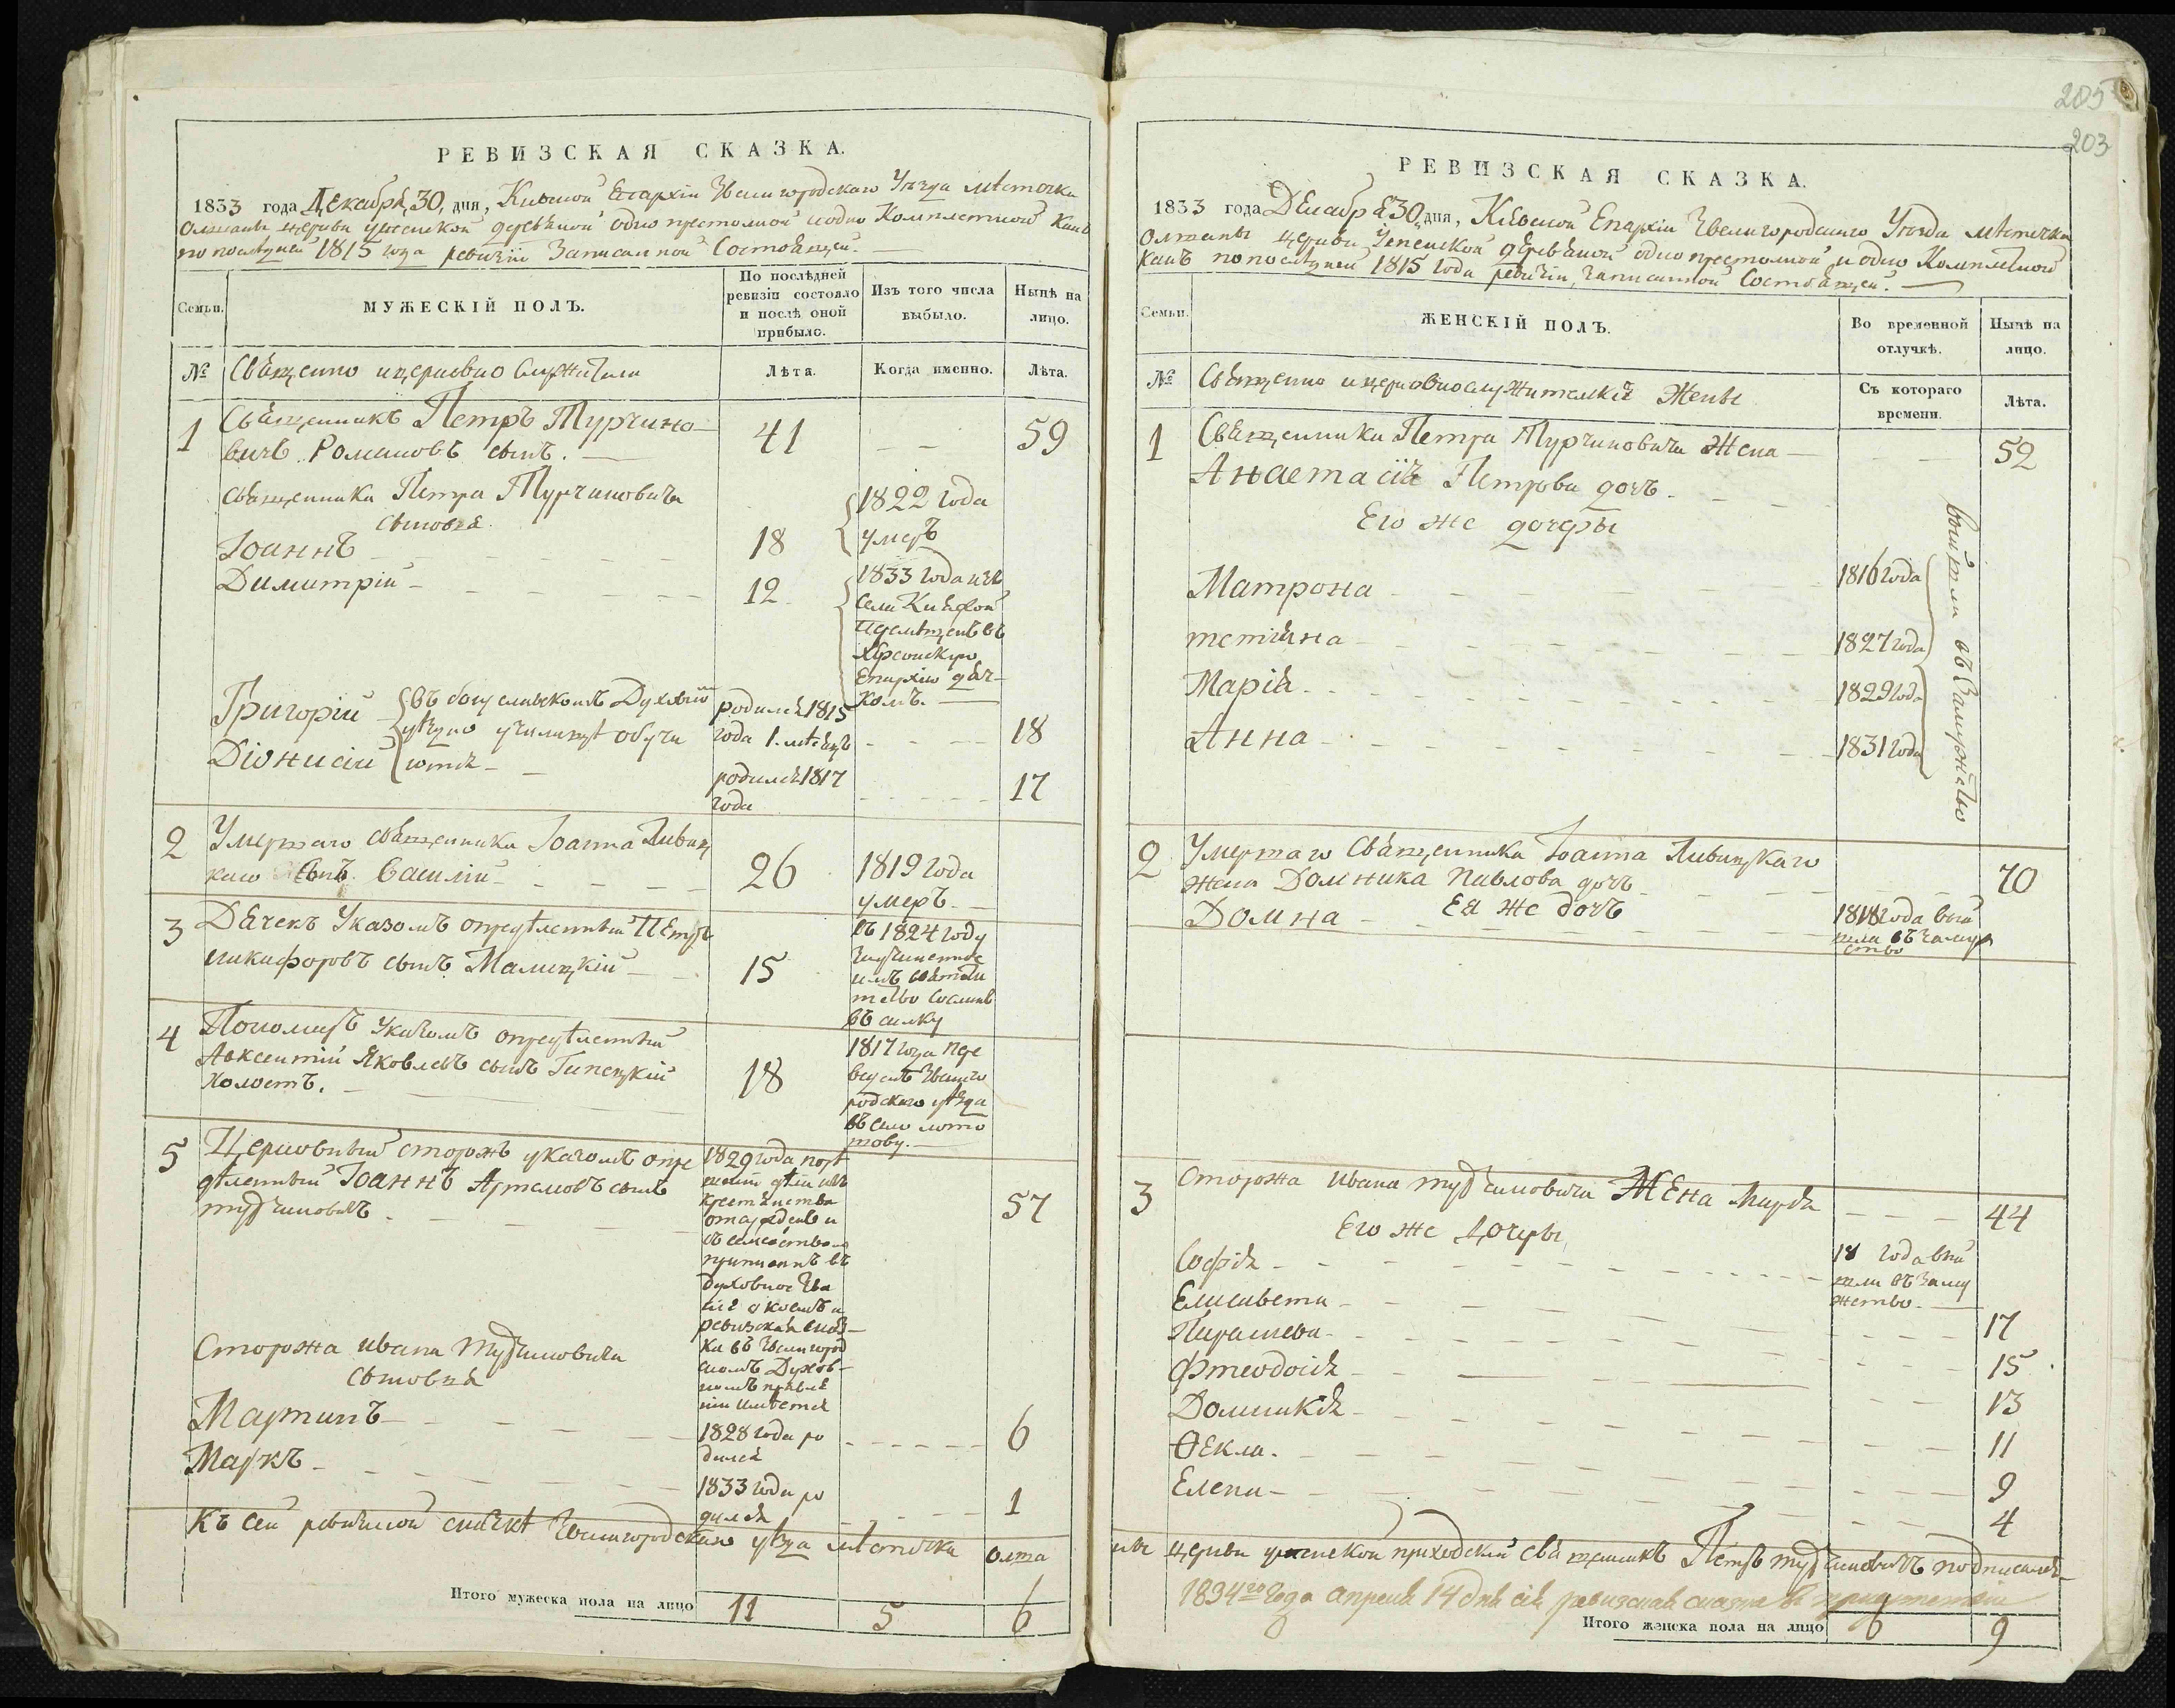 РЕВИЗСКАЯ СКАЗКА.
1833 года Декабря 30, дня, Киевской Епархіи Звенигородскаго Уѣзда мѣстечка
Олшаны церкви Успенской деревяной одно престолной и одно Комплетной Какъ
по послѣдней 1815 года ревизіи Записанной Состоящей.
Семьи.
МУЖЕСКІЙ ПОЛЪ.
По послѣдней
ревизіи состояло
и послѣ оной
прибыло.
Изъ того числа
выбыло.
Нынѣ на
лицо.
№
Священно и церковно Служители
Лѣта.
Когда именно.
Лѣта.
1
Священникъ Петръ Турчино-
вичъ Романовъ сынъ.
41
59
Священника Петра Турчиновича
Сыновья
Іоаннъ
18
1822 года
умеръ
Димитрій
12
1833 года изъ
Села
въ
Херсонскую
Епархію дяч-
комъ.
Григорій
Діонисій
въ богуславскомъ Духовно
уѣздно училищѣ обуча
ются
родился 1815
года 1. мѣсяцъ
18
родился 1817
года
17
2
Умершаго священника Іоанна Ливиц
каго Сынъ Василій
26
1819 года
умеръ
3
Дячекъ Указомъ опредѣленный Петръ
никифоровъ сынъ Малицкій
15
въ 1824 году
имъ
сосланъ
въ силку
4
Пономарь Указомъ опредѣленный
Авксентій Яковлевъ сынъ Липецкій
Холостъ.
18
1817 года пере
веденъ Звениго
родскаго уѣзда
въ село
5
Церковный сторожъ указомъ опре
дѣленный Іоаннъ Артемовъ сынъ
турчиновичъ
1829 года
крестянства
и
съ семействомъ
причисленъ въ
духовное зва
ніе о коемъ и
ревизская сказ-
ка въ Звенигород
скомъ Духов-
номъ правле
ніи имѣется
57
Сторожа ивана турчиновича
Сыновья
Мартинъ
1828 года ро
дился
6
Маркъ
1833 года ро
дился
1
Къ сей ревизской сказкѣ Звенигородскаго уѣзда мѣстечка Олша
Итого мужеска пола на лицо
11
5
6
205
203
РЕВИЗСКАЯ СКАЗКА.
1833 года Декабря 30 дня, Кіевской Епархіи Звенигородскаго Уѣзда мѣстечка
Олшаны церкви Успенской деревяной одно престолной и одно Комплетной
Какъ по послѣдней 1815 года ревизіи, записанной Состоящей.
Семьи.
ЖЕНСКІЙ ПОЛЪ.
Во временной
отлучкѣ.
Нынѣ на
лицо.
№
Священно и церковнослужителскіе Жены
Съ котораго
времени.
Лѣта.
1
Священника Петра Турчиновича Жена
Анастасія Петрова дочь
52
Его же дочеры
Матрона
1816 года
тетіяна
1827 года
Марія
1829 года
Анна
1831 года
вышли въ Замужство
2
Умершаго Священника Іоанна Ливицкаго
жена Домника Павлова дочь
70
Ея же дочь
Домна
1818 года вый
шла въ замуж
ство
3
Сторожа ивана турчиновича Жена Марія
44
Его же Дочеры
Софія
18 года вый
шли въ Заму
жство
Елисавета
17
Параскева
15
Фтеодосія
13
Доминикія
11
Ѳекла
9
Елена
4
ны церкви успенской приходскій священникъ Петръ турчиновичъ подписался
1834го года апреля 14 дня сія ревизская сказка въ
Итого женска пола на лицо
6
9